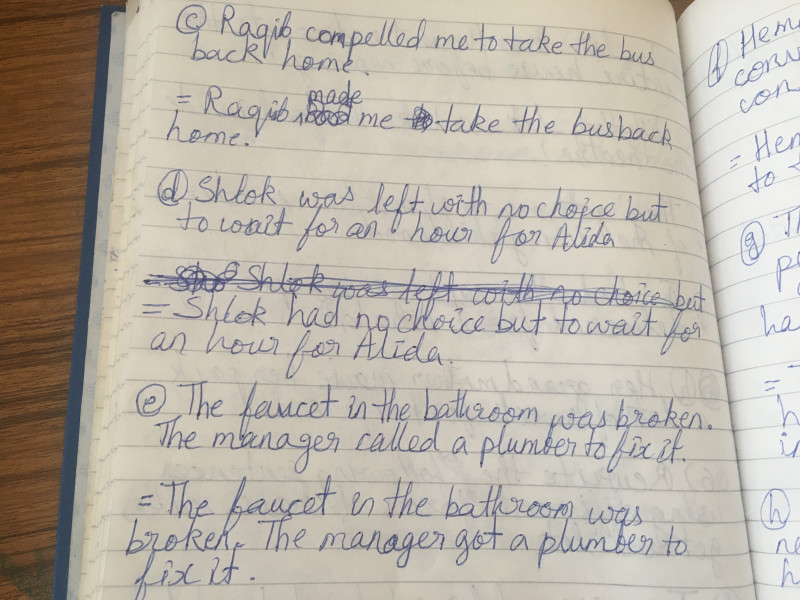 (c) Raqib compelled me to take the bus
back home.
= Raqib made me take the bus back
home.
(d) Shlok was left with no choice but
to wait for an hour for Alida
Shlok was left with no choice but
= Shlok had no choice but to wait for
an hour for Alida.
(e) The faucet in the bathroom was broken.
The manager called a plumber to fix it.
= The faucet in the bathroom was
broken. The manager got a plumber to
fix it.
(f) Hem
conv
con
= Hem
to t
(g) Th
pe
ha
=
h
in
(h)
ne
h